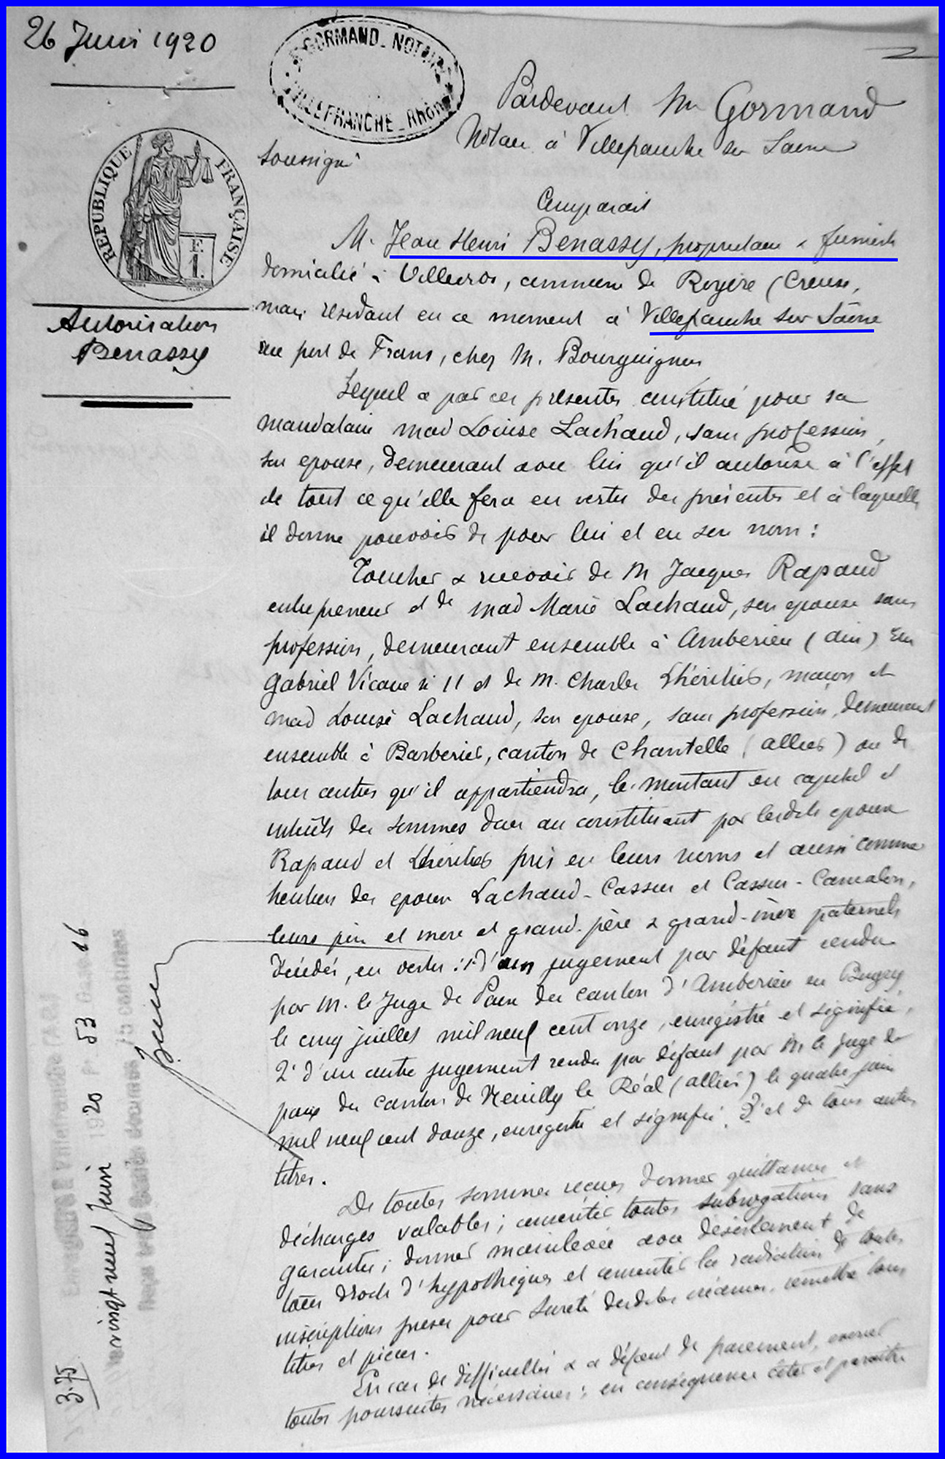 26 Juin 1920
GORMAND NOTAIRE
VILLEFRANCHE RHÔNE
RÉPUBLIQUE FRANÇAISE
Autorisation
Benassy
Pardevant Me Gormand
Notaire à Villefranche sur Saône
soussigné
Comparait
M. Jean Henri Benassy, propriétaire &
domicilié à, commune de Royère (Creuse,
mais résidant en ce moment à Villefranche sur Saône
rue port de Frans, chez M. Bourguignon
Lequel a par ces présentes constitué pour sa
mandataire mad Louise Lachaud, sans profession,
son epouse, demeurant avec lui qu'il autorise à l'effet
de tout ce qu'elle fera en vertu des présentes et à laquelle
il donne pouvoirs de pour lui et en son nom :
Toucher & recevoir de M Jacques Rapaud
entrepreneur et de mad Marie Lachaud, son epouse sans
profession, demeurant ensemble à Amberieu (ain) rue
Gabriel Vicaire n 11 et de M. Charles Lhéritier, maçon et
mad Louise Lachaud, son epouse, sans profession, demeurant
ensemble à Barberier, canton de Chantelle (allier) ou de
tous autres qu'il appartiendra, le montant en capital et
intérêts des sommes dues au constituant par lesdits epoux
Rapaud et Lhéritier pris en leurs noms et aussi comme
héritiers des epoux Lachaud-Cassier et Cassier-
leurs père et mere et grand-père & grand-mère paternels
décédés, en vertu : 1° d'un jugement par défaut rendu
par M. le Juge de Paix du canton d'Amberieu en Bugey
le cinq juillet mil neuf cent onze, enregistré et signifié,
2° d'un autre jugement rendu par défaut par M. le Juge de
paix du canton de Neuilly le Réal (allier) le quatre juin
mil neuf cent douze, enregistré et signifié. 3° et de tous autres
titres.
De toutes sommes recues donner quittances et
décharges valables ; consentir toutes subrogations sans
garantie ; donner mainlevée avec désistement de
tous droits d'hypothèques et consentir la radiation de toutes
inscriptions prises pour sureté desdites créances, remettre tous
titres et pièces.
En cas de difficultés & à défaut de paiement, exercer
toutes poursuites nécessaires ; en conséquence citer et paraître
vingt neuf Juin 1920 53 16
3.75